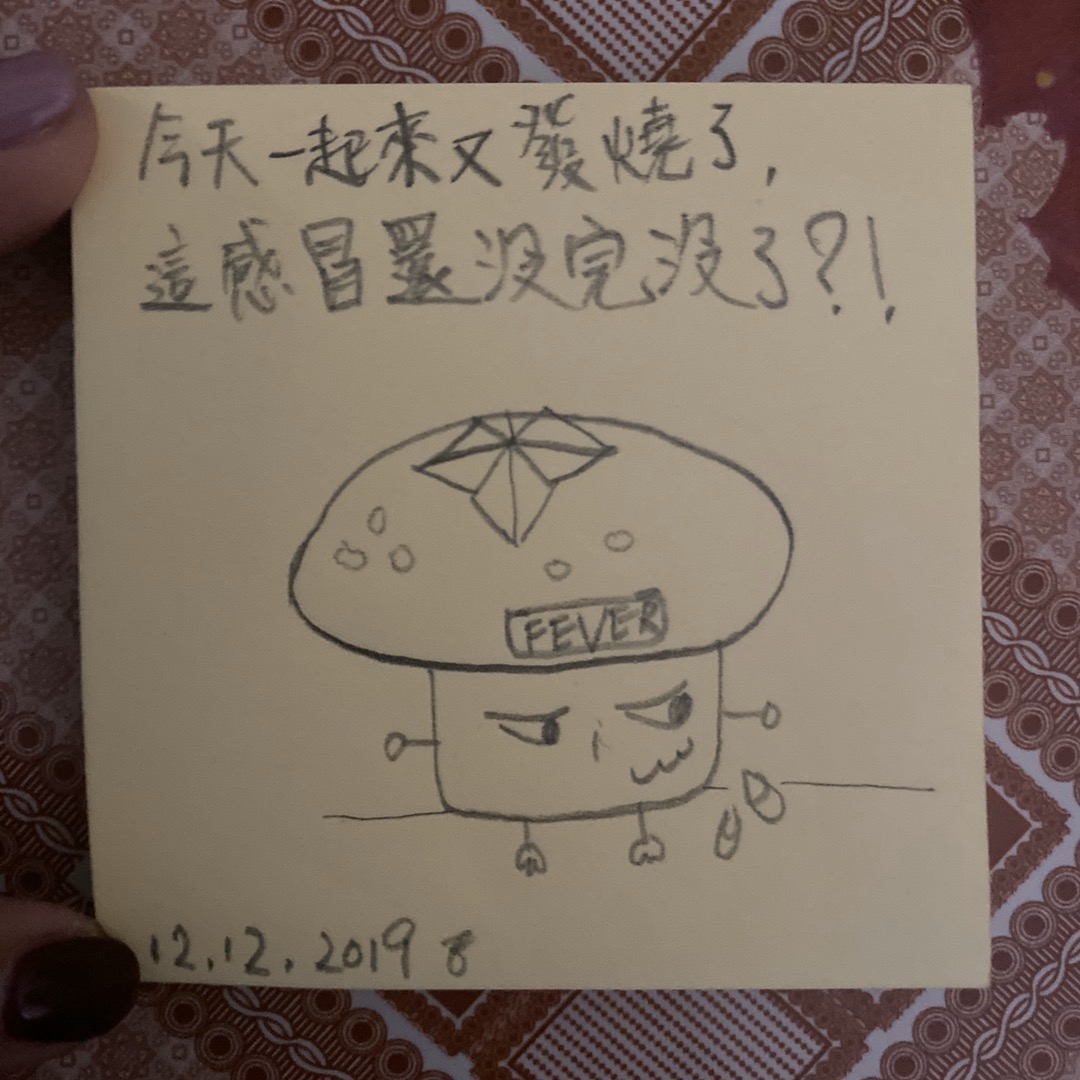 今天一起來又發燒了,
這感冒還没完没了?!
FEVER
12.12.2019